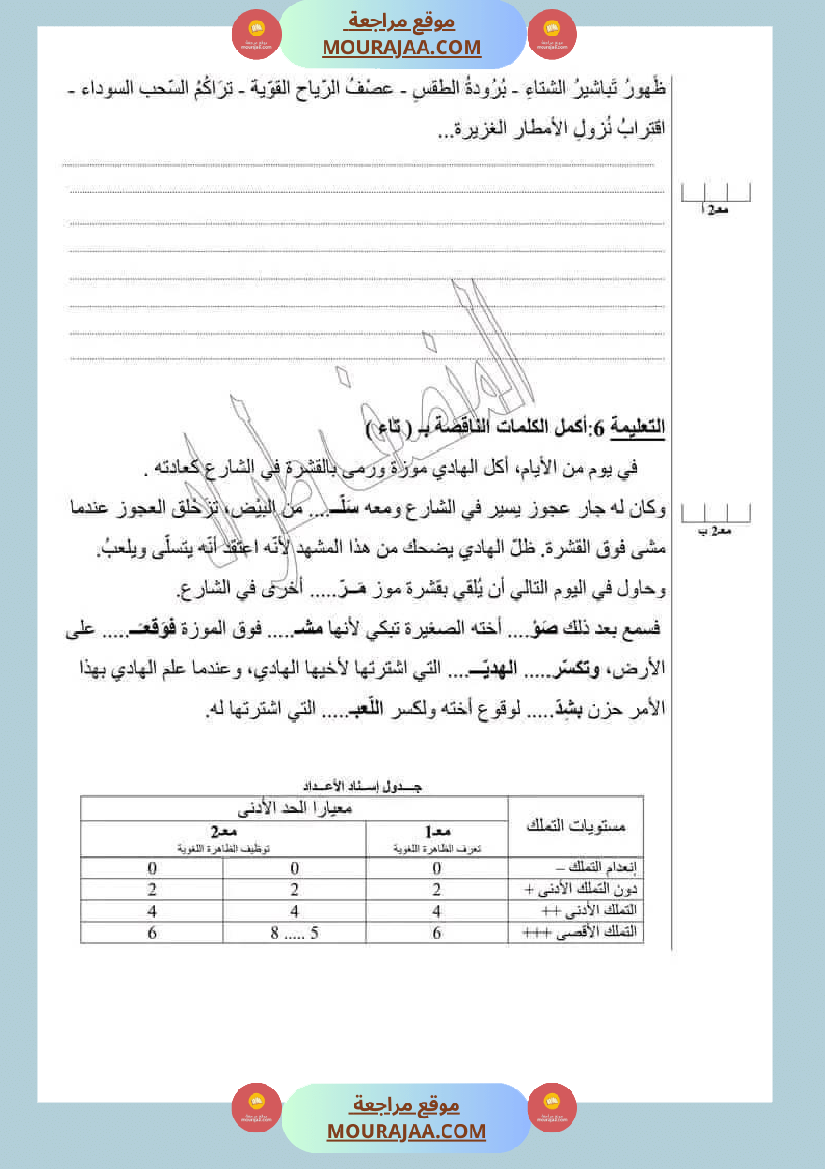 موقع مراجعة
MOURAJAA.COM
ظُهورُ تَباشيرُ الشتاءِ - بُرُودةُ الطقسِ - عصْفُ الرّياح القويّة - ترَاكُمُ السّحب السوداء -
اقترابُ نُزولِ الأمطار الغزيرة...
معـ2 أ
التعليمة 6:أكمل الكلمات الناقصة بـ ( تاء )
في يوم من الأيام، أكل الهادي موزة ورمى بالقشرة في الشارع كعادته .
وكان له جار عجوز يسير في الشارع ومعه سَلّــ.... من البيْض، تزحْلق العجوز عندما
معـ2 ب
مشى فوق القشرة. ظلّ الهادي يضحك من هذا المشهد لأنّه اعتقد أنّه يتسلّى ويلعبُ.
وحاول في اليوم التالي أن يُلقي بقشرة موز مَــرّ..... أخرى في الشارع.
فسمع بعد ذلك صَوْ.... أخته الصغيرة تبكي لأنها مشـ..... فوق الموزة فَوَقعَــ..... على
الأرض، وتكسّر..... الهديّــ.... التي اشترتها لأخيها الهادي، وعندما علم الهادي بهذا
الأمر حزن بشِدّ..... لوقوع أخته ولكسر اللّعبـ..... التي اشترتها له.
جـــدول إسـناد الأعــداد
مستويات التملك معيارا الحد الأدنى
معـ1 معـ2
تعرف الظاهرة اللغوية توظيف الظاهرة اللغوية
إنعدام التملك – 0 0 0
دون التملك الأدنى + 2 2 2
التملك الأدنى ++ 4 4 4
التملك الأقصى +++ 6 5 ..... 8 6
موقع مراجعة
MOURAJAA.COM